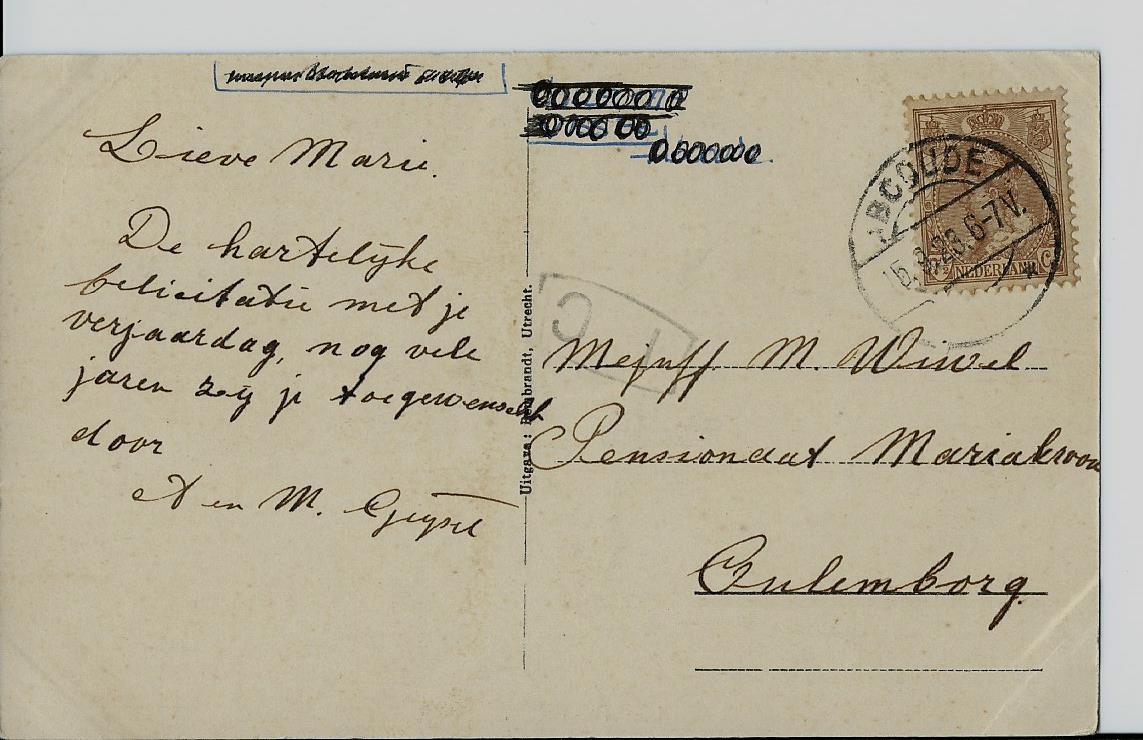 Lieve Marie.
De hartelijke
felicitatie met je
verjaardag, nog vele
jaren zij je toegewenscht
door
A en M. Geijsel
Uitgave: Rembrandt, Utrecht.
ABCOUDE
6-7V.
NEDERLAND
Mejuff M. Wiwel
Pensionaat Mariakroon
Culemborg